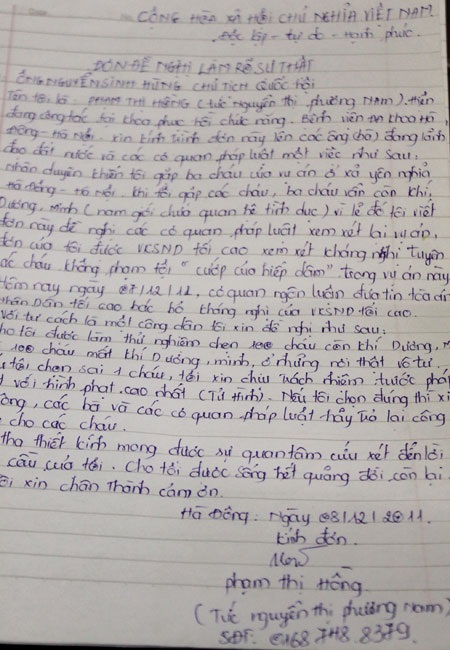 CỘNG HÒA XÃ HỘI CHỦ NGHĨA VIỆT NAM
Độc lập - tự do - hạnh phúc.
ĐƠN ĐỀ NGHỊ LÀM RÕ SỰ THẬT
ÔNG NGUYỄN SINH HÙNG CHỦ TỊCH QUỐC HỘI
Tên tôi là. PHẠM THỊ HỒNG (tức Nguyễn thị phương Nam). Hiện
đang công tác tại khoa phục hồi chức năng. Bệnh viện đa khoa Hà
Đông - Hà Nội. xin kính trình đơn này lên các ông (bà) đang lãnh
đạo đất nước và các cơ quan pháp luật một việc như sau:
nhân duyên khiến tôi gặp ba cháu của vụ án ở xã yên nghĩa
Hà Đông - Hà Nội. khi tôi gặp các cháu, ba cháu vẫn còn khí
Dương, Minh (nam giới chưa quan hệ tình dục) vì lẽ đó tôi viết
đơn này đề nghị các cơ quan pháp luật xem xét lại vụ án,
đơn của tôi được VKSND tối cao xem xét kháng nghị tuyên
các cháu không phạm tội "cướp của hiếp dâm". trong vụ án này
Hôm nay ngày 07/12/11, cơ quan ngôn luận đưa tin tòa án
nhân Dân tối cao bác bỏ kháng nghị của VKSND tối cao.
Với tư cách là một công dân tôi xin đề nghị như sau:
cho tôi được làm thử nghiệm chọn 100 cháu còn khí Dương, M
100 cháu mất khí Dương, minh, ở những nơi thật vô tư.
tôi chọn sai 1 cháu, tôi xin chịu trách nhiệm trước pháp
với hình phạt cao nhất (Tử hình). Nếu tôi chọn đúng thì xi
ông, các bà và các cơ quan pháp luật hãy trả lại công
cho các cháu.
tha thiết kính mong được sự quan tâm cứu xét đến lời
cầu của tôi. Cho tôi được sống hết quãng đời còn lại
tôi xin chân thành cảm ơn.
Hà Đông: Ngày 08/12/2011.
kính đơn.
phạm thị Hồng
(Tức nguyễn thị phương Nam)
SĐT. 0168.748.8379.